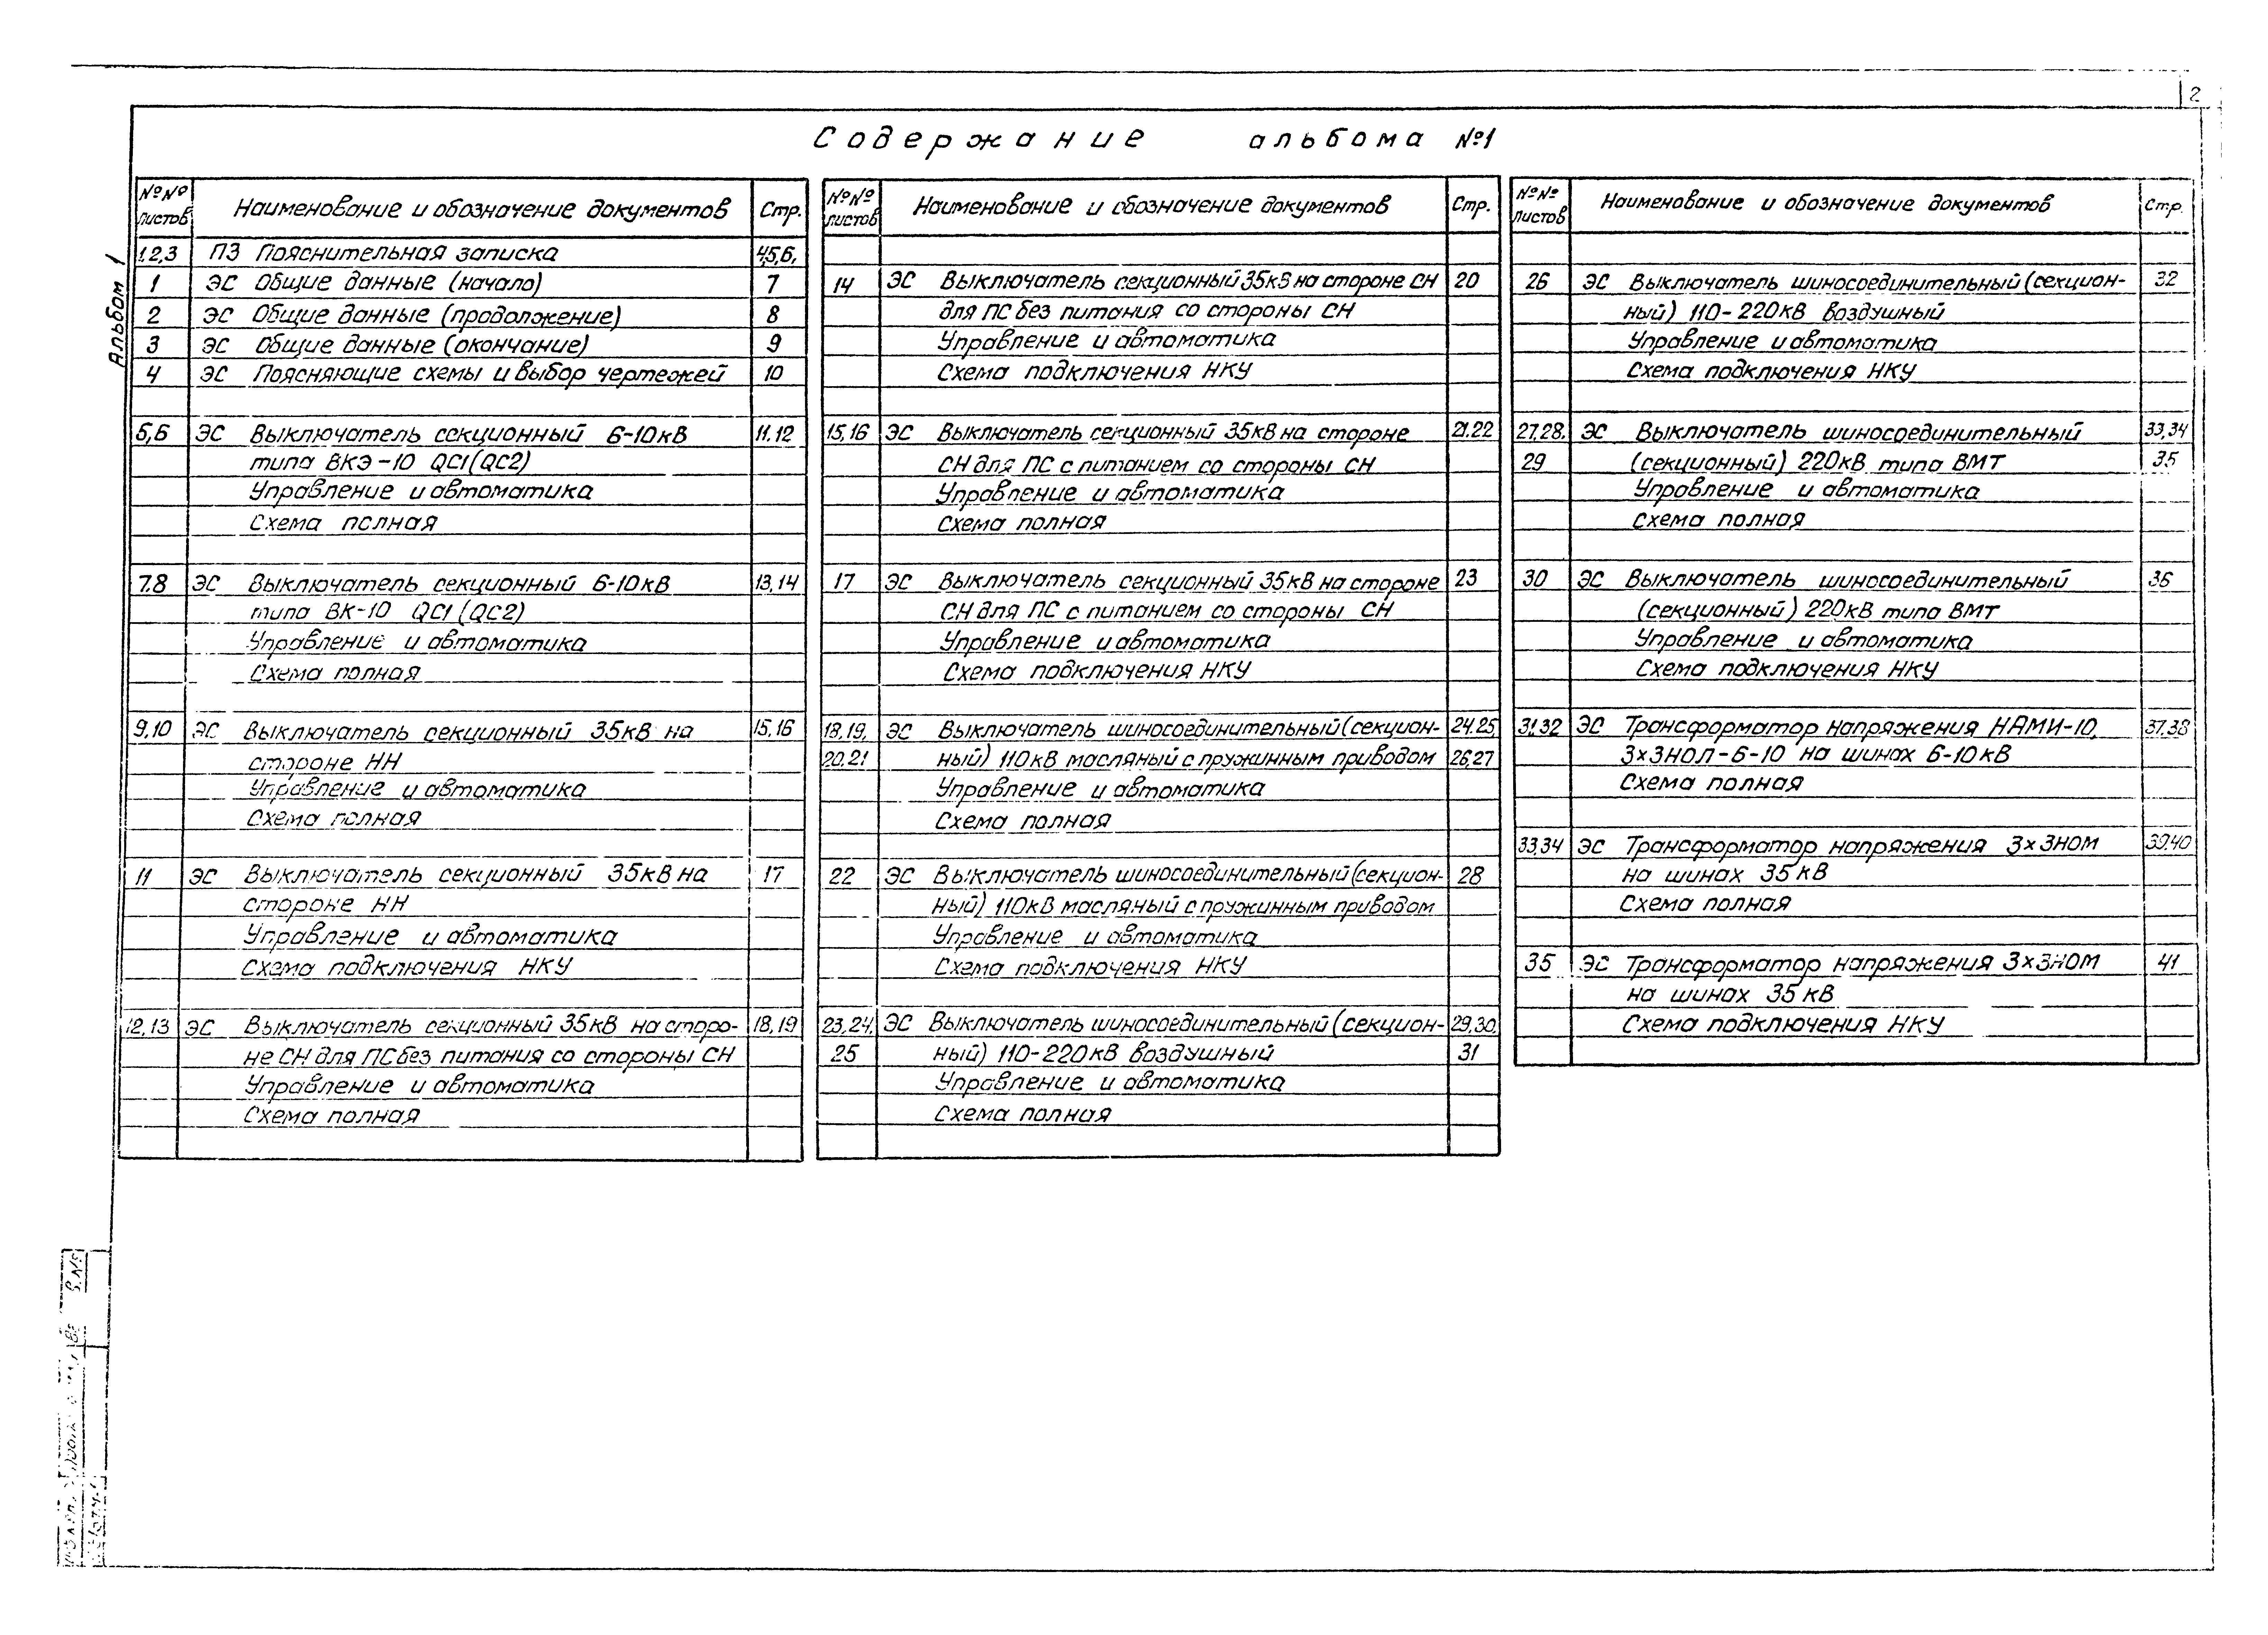 2
Содержание альбома №1
Альбом 1
№№ листов Наименование и обозначение документов Стр.
1,2,3 ПЗ Пояснительная записка 4,5,6,
1 ЭС Общие данные (начало) 7
2 ЭС Общие данные (продолжение) 8
3 ЭС Общие данные (окончание) 9
4 ЭС Поясняющие схемы и выбор чертежей 10
5,6 ЭС Выключатель секционный 6-10кВ 11.12
типа ВКЭ-10 QC1(QC2)
Управление и автоматика
Схема полная
7.8 ЭС Выключатель секционный 6-10кВ 13,14
типа ВК-10 QC1(QC2)
Управление и автоматика
Схема полная
9,10 ЭС Выключатель секционный 35кВ на 15,16
стороне НН
Управление и автоматика
Схема полная
11 ЭС Выключатель секционный 35кВ на 17
стороне НН
Управление и автоматика
Схема подключения НКУ
12,13 ЭС Выключатель секционный 35кВ на сторо- 18,19
не СН для ПС без питания со стороны СН
Управление и автоматика
Схема полная
№№ листов Наименование и обозначение документов Стр.
14 ЭС Выключатель секционный 35кВ на стороне СН 20
для ПС без питания со стороны СН
Управление и автоматика
Схема подключения НКУ
15,16 ЭС Выключатель секционный 35кВ на стороне 21.22
СН для ПС с питанием со стороны СН
Управление и автоматика
Схема полная
17 ЭС Выключатель секционный 35кВ на стороне 23
СН для ПС с питанием со стороны СН
Управление и автоматика
Схема подключения НКУ
18,19, ЭС Выключатель шиносоединительный (секцион- 24.25,
20,21 ный) 110кВ масляный с пружинным приводом 26,27
Управление и автоматика
Схема полная
22 ЭС Выключатель шиносоединительный (секцион- 28
ный) 110кВ масляный с пружинным приводом
Управление и автоматика
Схема подключения НКУ
23,24, ЭС Выключатель шиносоединительный (секцион- 29,30,
25 ный) 110-220кВ воздушный 31
Управление и автоматика
Схема полная
№№ листов Наименование и обозначение документов Стр.
26 ЭС Выключатель шиносоединительный (секцион- 32
ный) 110-220кВ воздушный
Управление и автоматика
Схема подключения НКУ
27,28. ЭС Выключатель шиносоединительный 33,34
29 (секционный) 220кВ типа ВМТ 35
Управление и автоматика
Схема полная
30 ЭС Выключатель шиносоединительный 36
(секционный) 220кВ типа ВМТ
Управление и автоматика
Схема подключения НКУ
31,32 ЭС Трансформатор напряжения НАМИ-10, 37,38
3×ЗНОЛ-6-10 на шинах 6-10кВ
Схема полная
33,34 ЭС Трансформатор напряжения 3×ЗНОМ 39,40
на шинах 35кВ
Схема полная
35 ЭС Трансформатор напряжения 3×ЗНОМ 41
на шинах 35кВ
Схема подключения НКУ